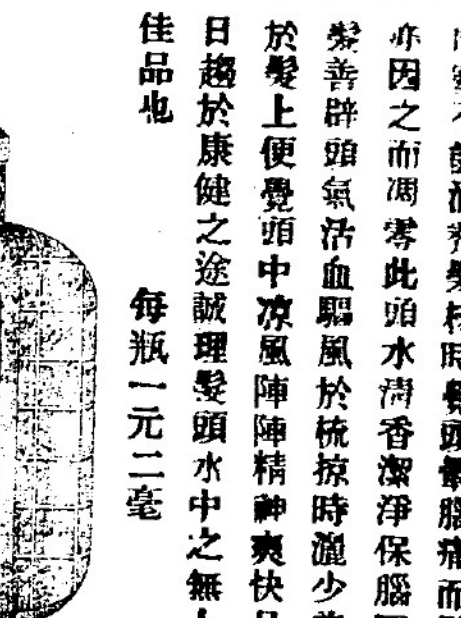 髮梳時覺頭暈腦痛而
亦因之而凋零此頭水清香潔淨保腦
髮善辟頭氣活血驅風於梳掠時灑少
於髮上便覺頭中凉風陣陣精神爽快
日趨於康健之途誠理髮頭水中之無
佳品也
每瓶一元二毫